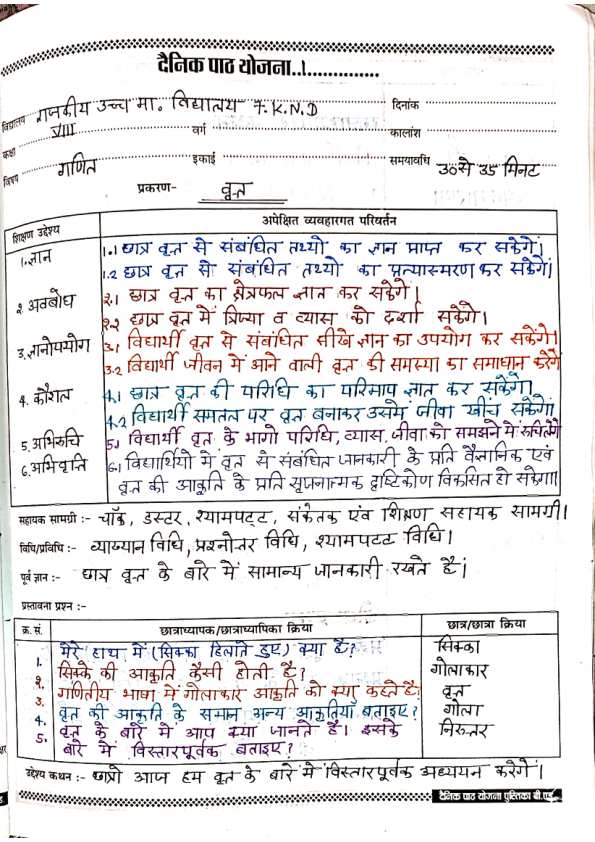 दैनिक पाठ योजना..1..............
विद्यालय राजकीय उच्च मा. विद्यालय F.K.N.D दिनांक
कक्षा VIII वर्ग कालांश
विषय गणित इकाई समयावधि 30 से 35 मिनट
प्रकरण- वृत्त
शिक्षण उद्देश्य अपेक्षित व्यवहारगत परिवर्तन
1. ज्ञान 1.1 छात्र वृत्त से संबंधित तथ्यो का ज्ञान प्राप्त कर सकेंगे।
1.2 छात्र वृत्त से संबंधित तथ्यो का प्रत्यास्मरण कर सकेंगे।
2 अवबोध 2.1 छात्र वृत्त का क्षेत्रफल ज्ञात कर सकेंगे।
2.2 छात्र वृत्त में त्रिज्या व व्यास को दर्शा सकेंगे।
3. ज्ञानोपयोग 3.1 विद्यार्थी वृत्त से संबंधित सीखे ज्ञान का उपयोग कर सकेंगे।
3.2 विद्यार्थी जीवन में आने वाली वृत्त की समस्या का समाधान करेंगे
4. कौशल 4.1 छात्र वृत्त की परिधि का परिमाप ज्ञात कर सकेंगे।
4.2 विद्यार्थी समतल पर वृत्त बनाकर उसमें जीवा खींच सकेंगे।
5. अभिरुचि 5.1 विद्यार्थी वृत्त के भागो परिधि, व्यास, जीवा को समझने में रुचि लेंगे
6. अभिवृत्ति 6.1 विद्यार्थियो में वृत्त से संबंधित जानकारी के प्रति वैज्ञानिक एवं
वृत्त की आकृति के प्रति सृजनात्मक दृष्टिकोण विकसित हो सकेगा।
सहायक सामग्री :- चॉक, डस्टर, श्यामपट्ट, संकेतक एंव शिक्षण सहायक सामग्री।
विधि/प्रविधि :- व्याख्यान विधि, प्रश्नोतर विधि, श्यामपटट विधि।
पूर्व ज्ञान :- छात्र वृत्त के बारे में सामान्य जानकारी रखते है।
प्रस्तावना प्रश्न :-
क्र. सं. छात्राध्यापक/छात्राध्यापिका क्रिया छात्र/छात्रा क्रिया
1. मेरे हाथ में (सिक्का हिलाते हुए) क्या है? सिक्का
2. सिक्के की आकृति कैसी होती है? गोलाकार
3. गणितीय भाषा में गोलाकार आकृति को क्या कहते है? वृत्त
4. वृत्त की आकृति के समान अन्य आकृतियाँ बताइए? गोला
5. वृत्त के बारे में आप क्या जानते है। इसके निरुत्तर
बारे में विस्तारपूर्वक बताइए?
उद्देश्य कथन :- छात्रो आज हम वृत्त के बारे में विस्तारपूर्वक अध्ययन करेगें।
दैनिक पाठ योजना पुस्तिका बी.एड.